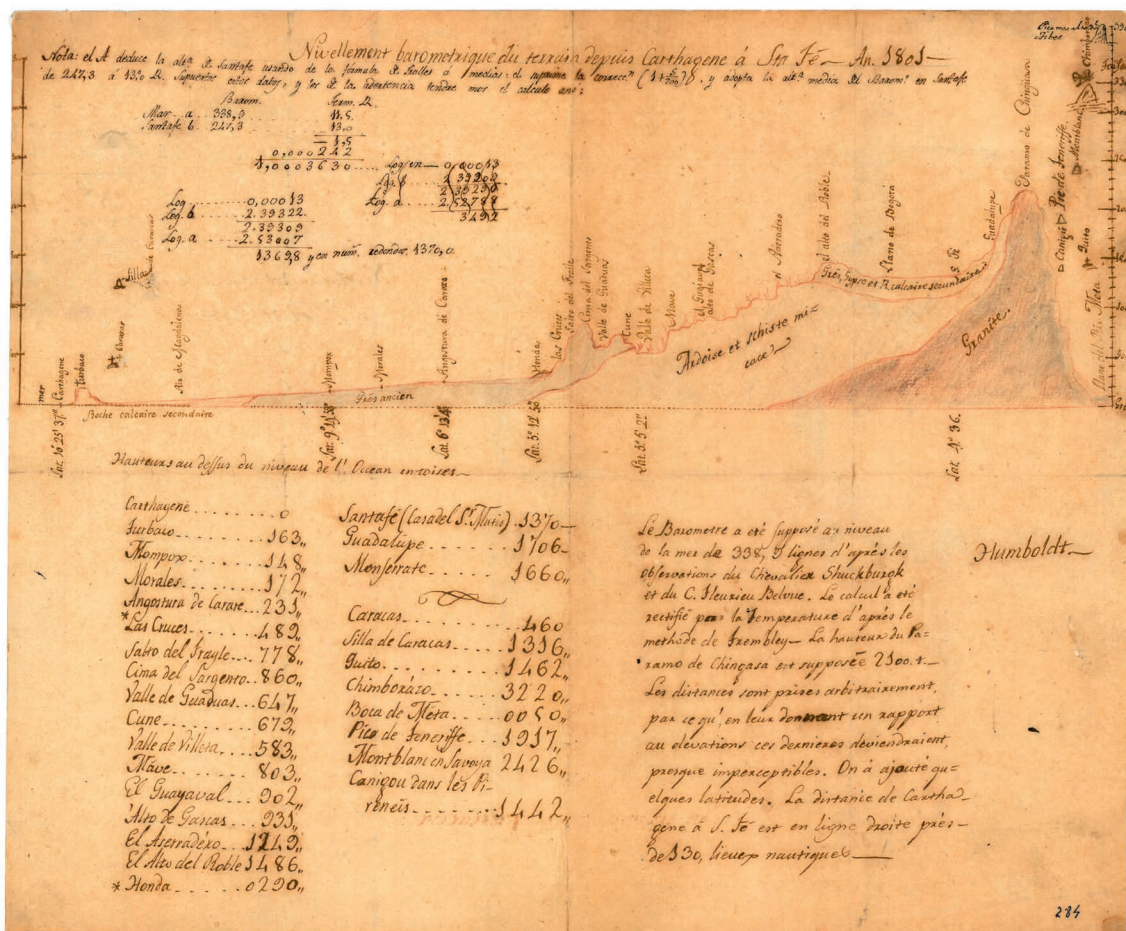 Nivellement barometrique du terrain depuis Carthagene á Sta Fé — An. 1801 —
Nota: el A deduce la alt.ª de Santafe usando de la formula de Tralles á medias: el
de 247,3 á 13.º R. y adopta la alt.ª media del Barom.º en Santafe
y el calculo asi:
Barom. Term. R.
Mar. a 338,9 11,5
Santafe b. 247,3 13,0
1,5
0,000242
1,0003630
Log. 0,00013
Log. b 2.39322
2.39309
Log. a 2.53007
1369,8 y en num. redondos 1370,0
Silla de Caracas
Caracas
mer
Carthagene
Turbaco
Rio de Magdalena
Mompox
Morales
Angostura de Carare
Honda
Las Cruces
Salto del Frayle
Cima del Sargento
Valle de Guaduas
Cune
Valle de Villeta
Mave
el Guayaval
alto de Gascas
el Aserradero
el alto del Roble
Llano de Bogota
S. Fé
Guadalupe
Paramo de Chingasa
Canigú
Pic de Teneriffe
Montblanc
Quito
Chimborazo
Llano del Rio Meta
Roche calcaire secondaire
Grés ancien
Ardoise et schiste mi-
cacé
Grés, Gypse et R. calcaire secondaire
Granite.
Lat. 10° 25' 37"
Lat. 5° 12' 50"
Lat. 5° 5' 2"
Lat. 4° 36.
Hauteurs au dessus du niveau de l'Ocean en toises —
Carthagene 0
Turbaco 163,,
Mompox 148,,
Morales 172,,
Angostura de Carare 231,,
*Las Cruces 489,,
Salto del Frayle 778,,
Cima del Sargento 860,,
Valle de Guaduas 647,,
Cune 679,,
Valle de Villeta 583,,
Mave 803,,
El Guayaval 902,,
Alto de Gascas 931,,
El Aserradéro 1249,,
El Alto del Roble 1486,,
* Honda 0290,,
Santafé (Casa del S.r Mutis) 1370 —
Guadalupe 1706 —
Monserrate 1660,,
Caracas 460
Silla de Caracas 1316,,
Quito 1462,,
Chimborázo 3220,,
Boca de Meta 0050,,
Pico de Teneriffe 1917,,
Montblanc en Savoya 2426,,
Canigou dans les Pi-
renéis 1442,,
Le Barometre a eté supposé au niveau
de la mer de 338,9 lignes d'aprés les
observations du Chevalier Shuckburgk
et du C. Fleurieu Belvue. Le calcul a eté
rectifié par la Temperature d'aprés le
methode de Trembley — La hauteur du Pa-
ramo de Chingasa est supposée 2100. t. —
Les distances sont prises arbitrairement,
par ce qu'en leur donnant un rapport
au elevations ces dernieres deviendraient,
presque imperceptibles. On á ajouté qu-
elques latitudes. La distance de Cartha-
gene á S. Fé est en ligne droite prés —
de 130, lieues nautiques —
Humboldt —
284